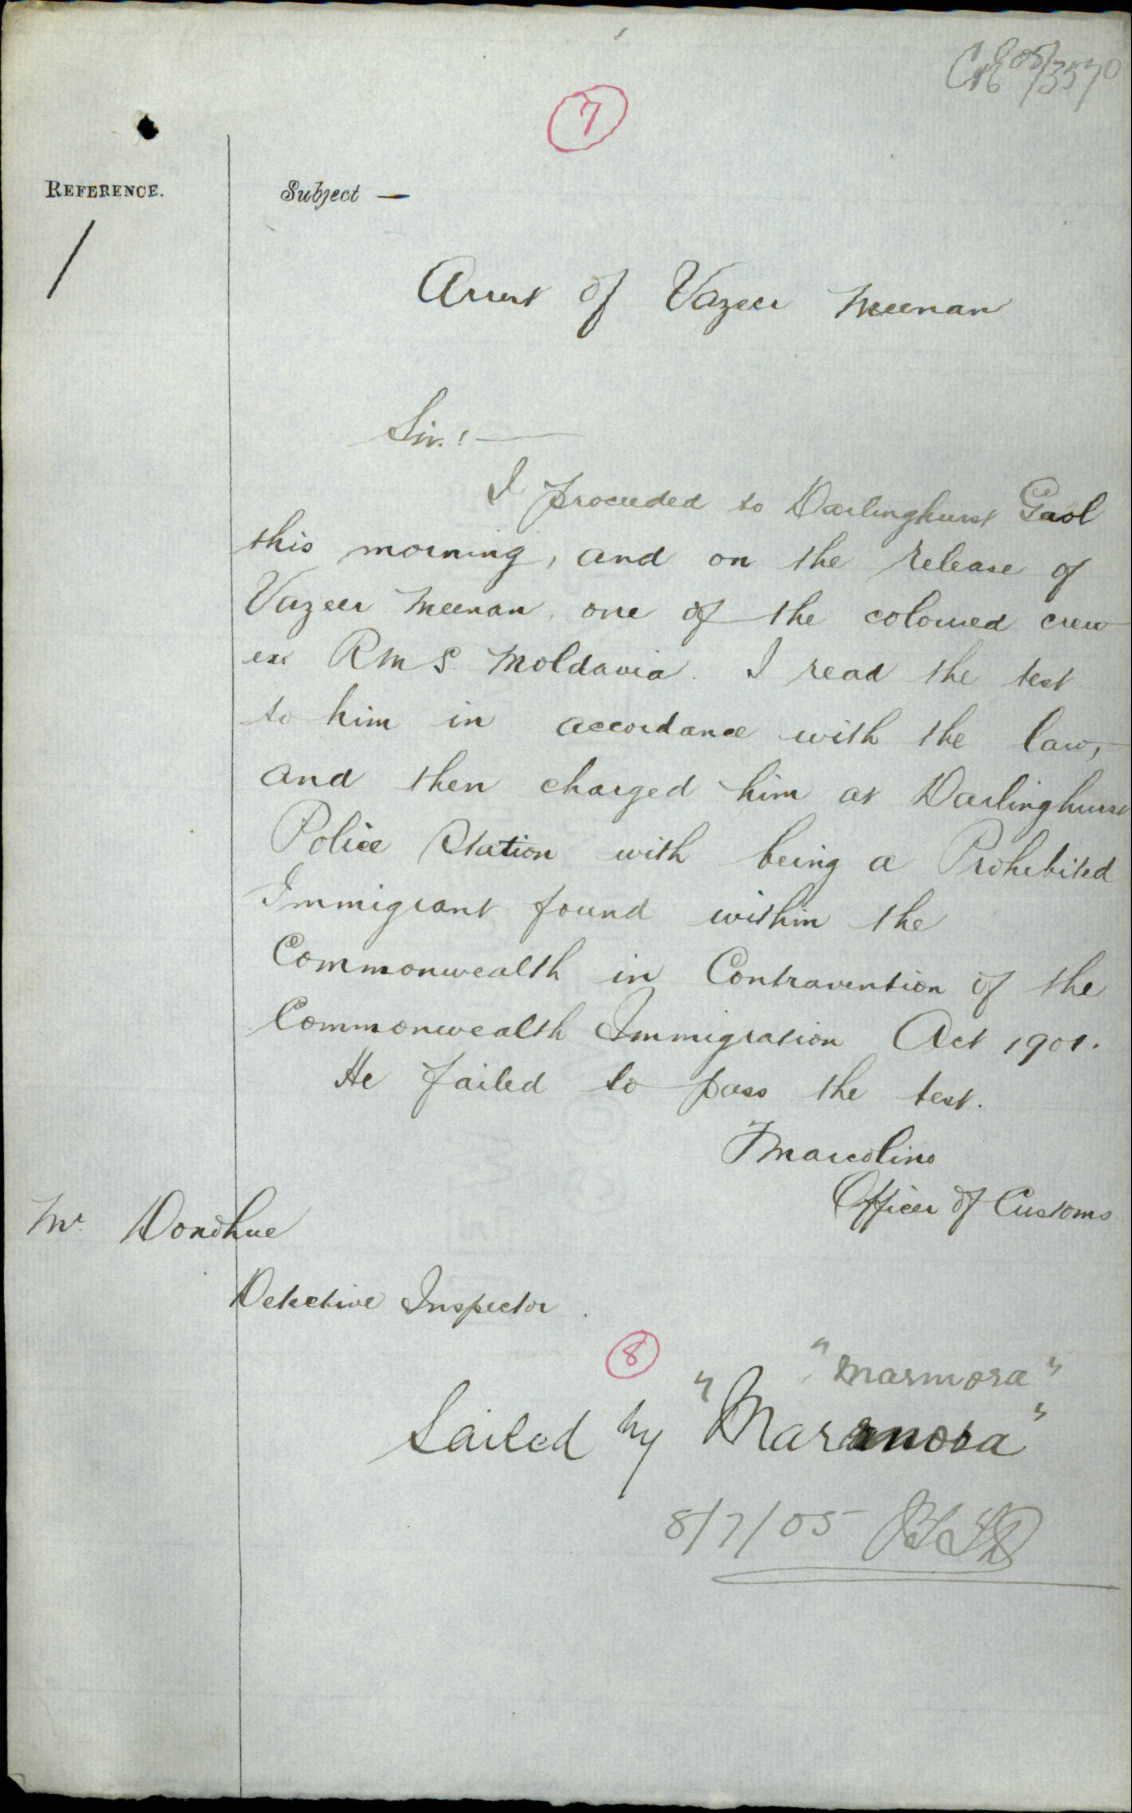 C05/3570
7
REFERENCE.
Subject —
Arrest of Vazeer Meenan
Sir:—
I proceeded to Darlinghurst Gaol
this morning, and on the release of
Vazeer Meenan, one of the coloured crew
ex R M S Moldavia. I read the test
to him in accordance with the law,
and then charged him at Darlinghurst
Police Station with being a Prohibited
Immigrant found within the
Commonwealth in Contravention of the
Commonwealth Immigration Act 1901.
He failed to pass the test.
Marcolino
Officer of Customs
Mr. Donohue
Detective Inspector.
8
"Marmora"
Sailed by "Marmora"
8/7/05